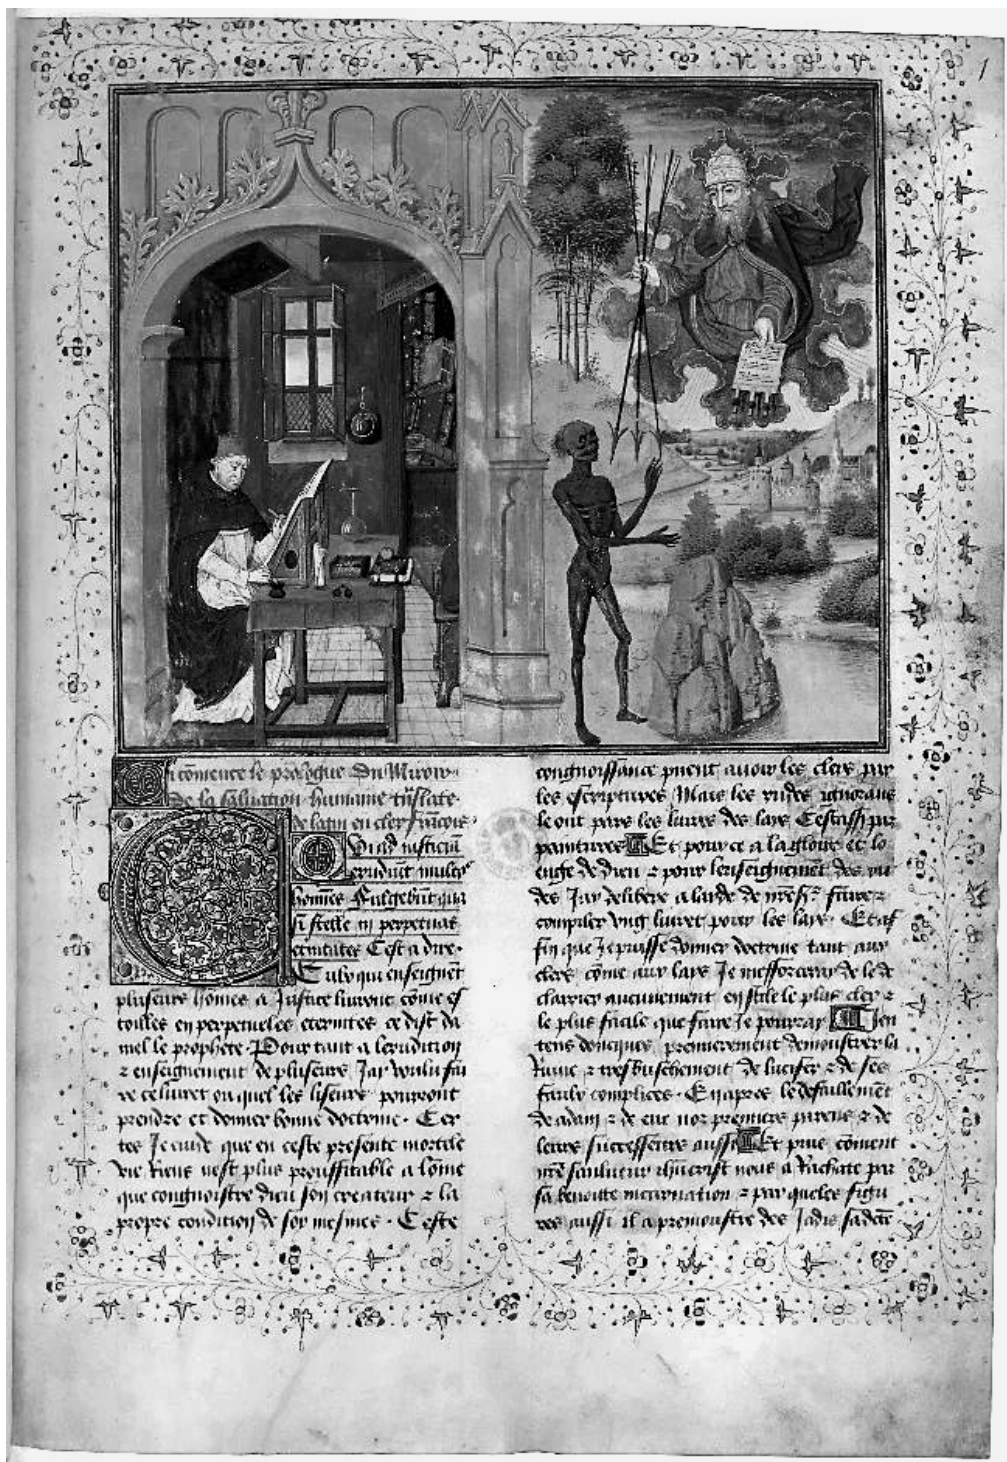 1
Cy cōmence le prologue du Miroir
de la saluation humaine trāslate
de latin en cler francois
Qui ad iusticiam
erudiūt multos
homīes fulgebūt qua
si stelle in perpetuas
eternitates Cest a dire
Ceulx qui enseignēt
pluseurs hōmes a Justice luiront cōme es
toilles en perpetueles eternites ce dist da
niel le prophete Pour tant a lerudition
⁊ enseignement de pluseurs Jay voulu fai
re ce liuret ou quel les liseurs pourront
prendre et donner bonne doctrine Cer
tes Je cuide que en ceste presente mortele
vie Riens nest plus prouffitable a lōme
que congnoistre dieu son createur ⁊ la
propre condition de soy mesmes Ceste
congnoissance pueent auoir les clers par
les escriptures Mais les rudes ignorans
le ont par les liures des lays Cest assr̄ par
paintures Et pour ce a la gloire et lo
enge de dieu ⁊ pour lenseignemēt des ru
des Jay delibere a laide de nr̄e sr̄ faire ⁊
compiler vng liuret pour les lays Et af
fin que Je puisse donner doctrine tant aux
clers cōme aux lays Je mefforceray de le de
clairier aucunement en stile le plus cler ⁊
le plus facile que faire Je pourray Jen
tens doncques premierement demonstrer la
Ruine ⁊ tresbuschement de lucifer ⁊ de ses
faulx complices En apres le defaillemēt
de adam ⁊ de eue noz premiers parens ⁊ de
leurs successeurs aussi Et puis cōment
nr̄e saulueur ihūcrist nous a Rachate par
sa benoite incarnation ⁊ par queles figu
res aussi il a premonstre des Jadis sa